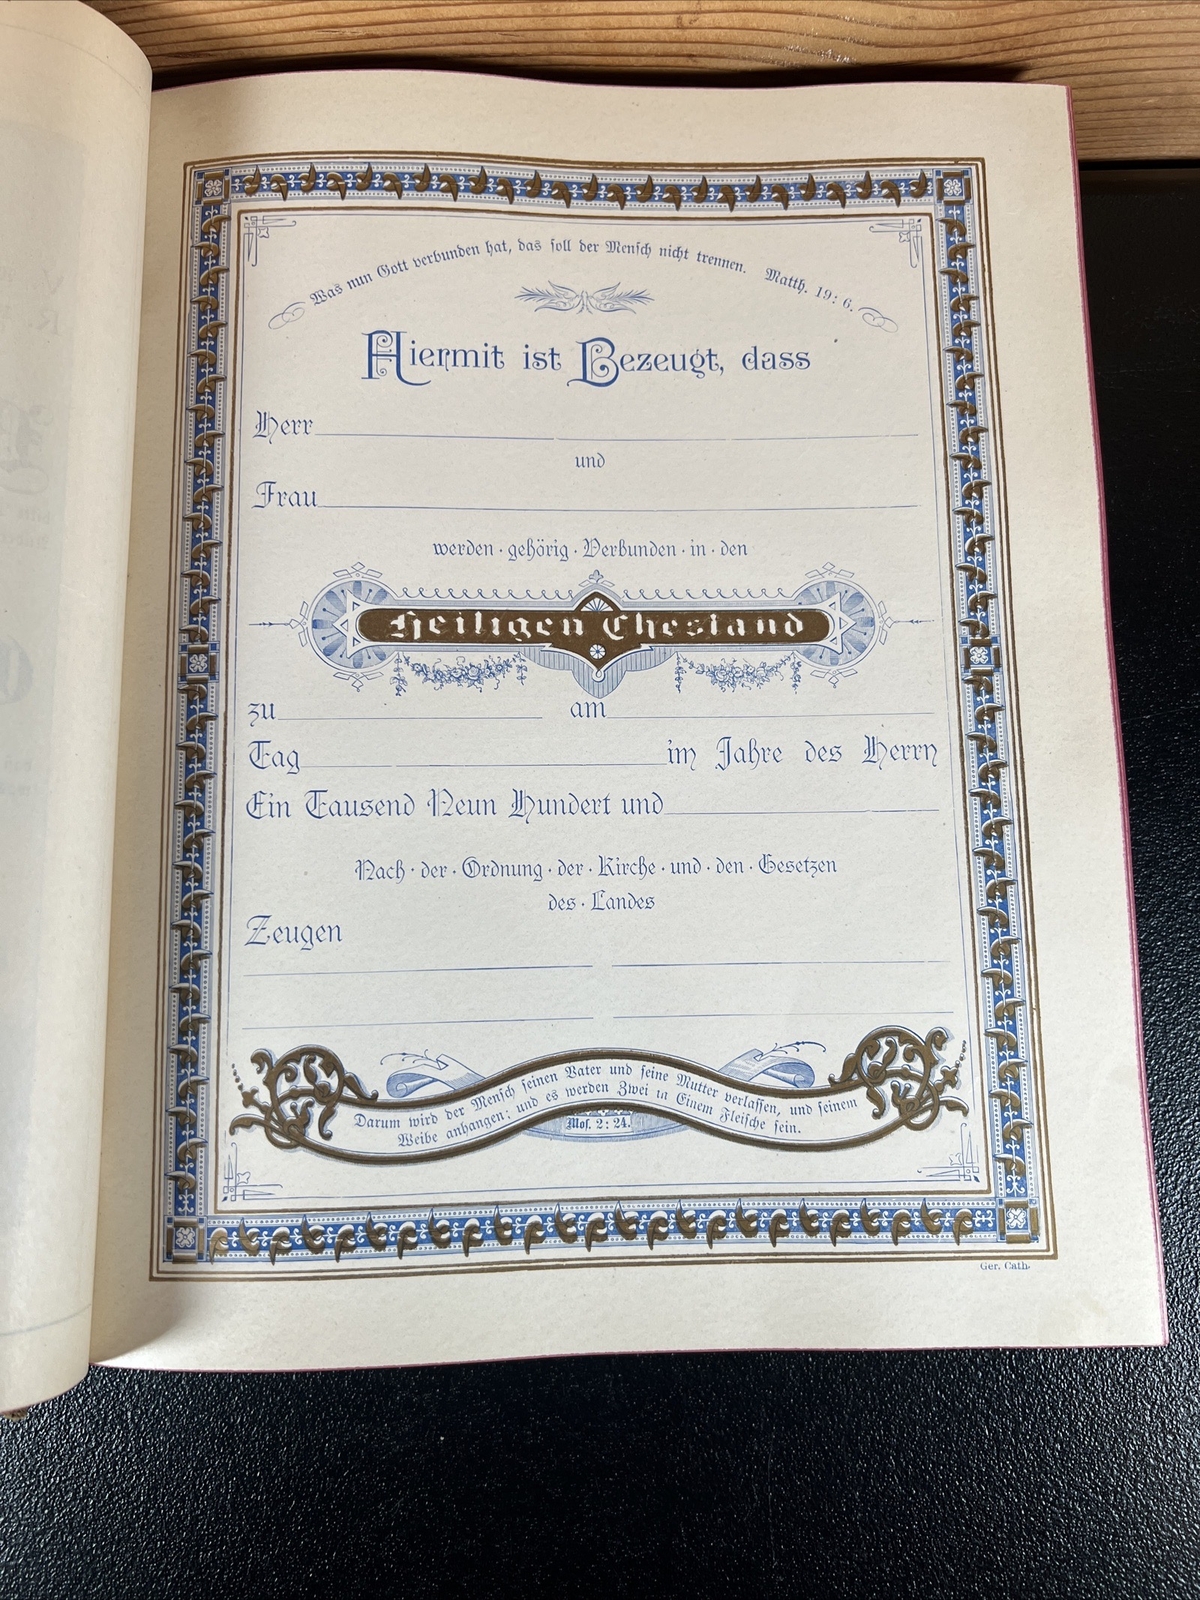 Was nun Gott verbunden hat, das soll der Mensch nicht trennen. Matth. 19: 6.
Hiermit ist Bezeugt, dass
Herr
und
Frau
werden · gehörig · Verbunden · in · den
Heiligen Ehestand
zu am
Tag im Jahre des Herrn
Ein Tausend Neun Hundert und
Nach · der · Ordnung · der · Kirche · und · den · Gesetzen
des · Landes
Zeugen
Darum wird der Mensch seinen Vater und seine Mutter verlassen, und seinem
Weibe anhangen; und es werden Zwei in Einem Fleische sein.
Mos. 2: 24.
Ger. Cath.